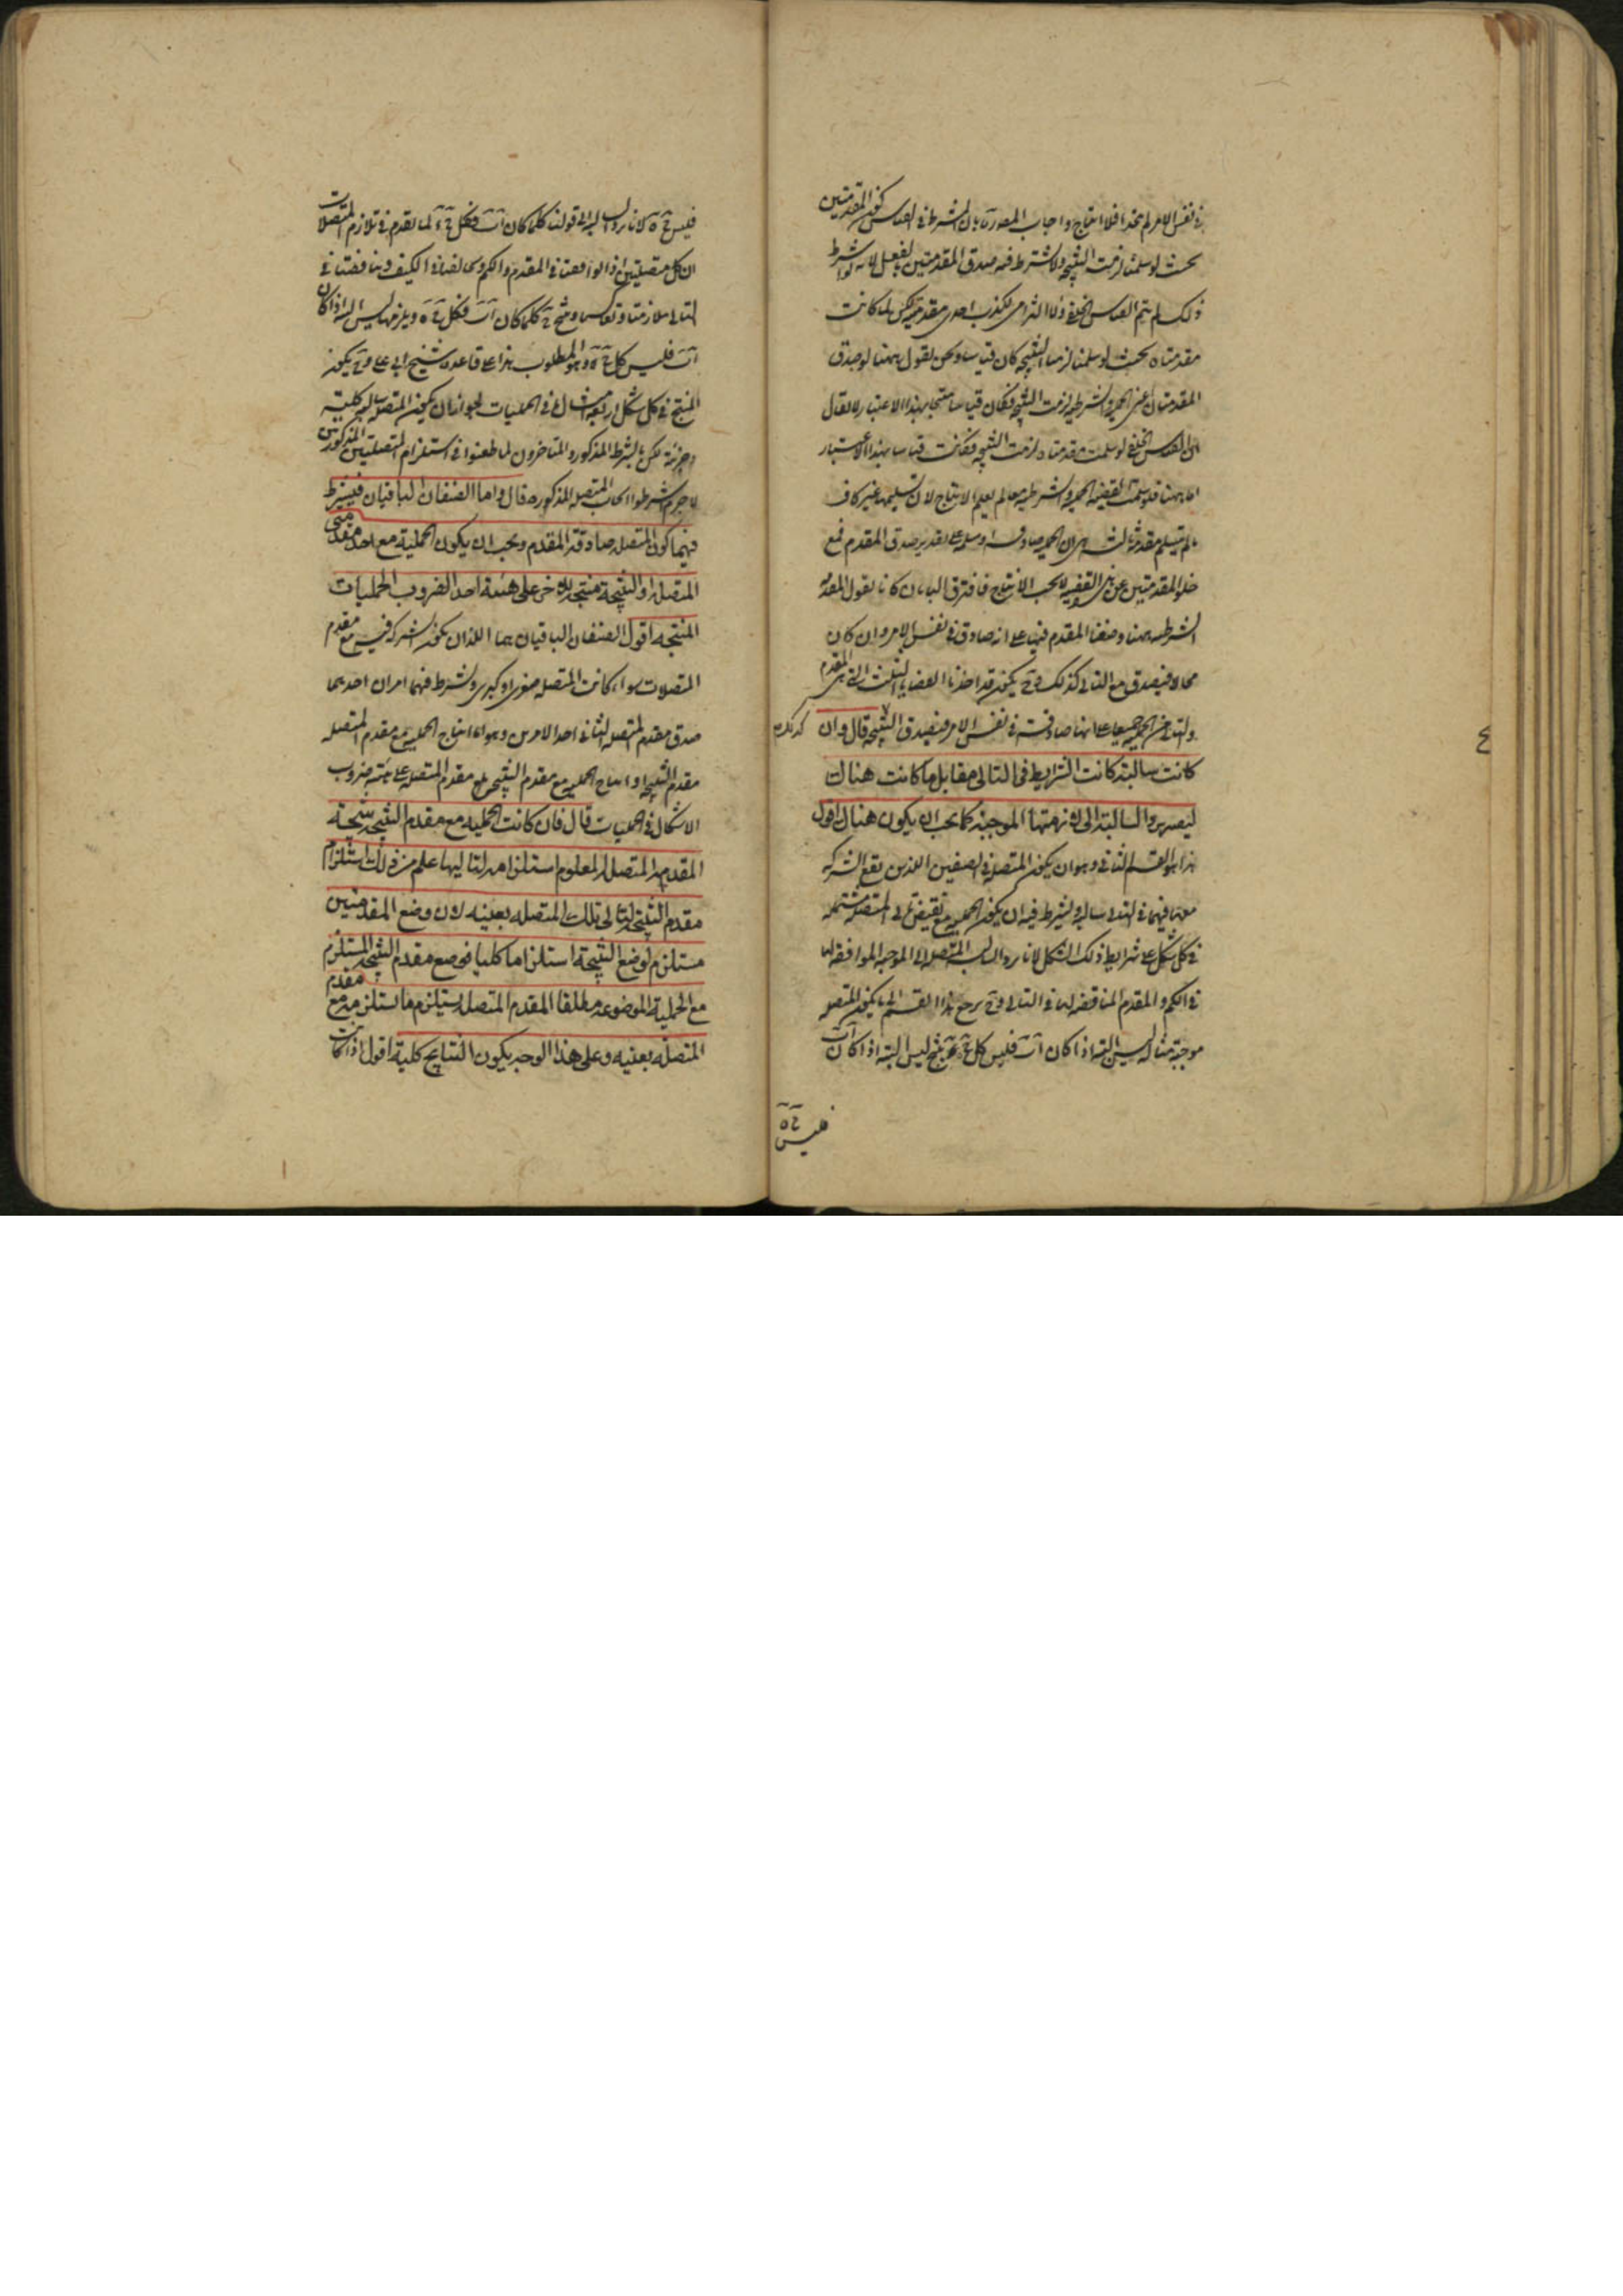 في نفس الامر لم يتحد فلا انتاج واجاب المصدر بان المشترط في القياس كون المقدمتين
بحيث لو سلمتا لزمت النتيجة ولا يشترط فيه صدق المقدمتين بالفعل لانه لو اشترط
ذلك لم يتم القياس الخلفي ولا الالزامي لكذب احدى مقدمتيه لكن لما كانت
مقدمتاه بحيث لو سلمتا لزمها النتيجة كان قياسا ونحن نقول ههنا لو صدق
المقدمتان اعني الحملية والشرطية لزمت النتيجة فكان قياسا منتجا بهذا الاعتبار لا يقال
القياس الخلفي لو سلمت مقدمتاه لزمت النتيجة فكانت قياسا بهذا الاعتبار
اما ههنا قد سلمت القضية الحملية والشرطية معا لم يعلم الانتاج لان تسليمهما غير كاف
ما لم يتسلم مقدمة ثالثة هي ان الحملية صادقة او مسلمة على تقدير صدق المقدم فمع
خلو المقدمتين عن هذه القضية لا يجب الانتاج فافترق البابان لانا نقول المقدمة
الشرطية ههنا وضعنا المقدم فيها على انه صادق في نفس الامر وان كان
محالا فيصدق مع التالي كذلك وح يكون قد اخذنا القضايا الثلث التي هي المقدم
والتالي والحملية جميعا على انها صادقة في نفس الامر فيصدق النتيجة قال وان
كانت سالبة كانت الشرايط في التالي مقابل ما كانت هناك
ليصير السالبة الى لازمتها الموجبة كما يجب ان يكون هناك اقول
هذا هو القسم الثاني وهو ان يكون المتصلة في الصنفين اللذين يقع الشركة
معها فيهما في التالي سالبة ويشترط فيه ان يكون الحملية مع نقيض تالي المتصلة مشتملة
في كل شكل على شرايط ذلك الشكل لانا نرد السالبة المتصلة الى الموجبة الموافقة لها
في الكم والمقدم المناقضة لها في التالي وح يرجع هذا القسم الى ما يكون المتصلة
موجبة مثاله ليس البتة اذا كان اب فليس كل ج د ينتج ليس البتة اذا كان اب
فليس ج ه
فليس ج ه لانا نرد السالبة الى قولنا كلما كان اب فكل ج د لما تقدم في تلازم المتصلات
ان كل متصلتين اذا توافقتا في المقدم والكم وتخالفتا في الكيف وتناقضتا في
التالي تلازمتا وتعاكستا وينتج كلما كان اب فكل ج ه ويلزمها ليس البتة اذا كان
اب فليس كل ج ه وهو المطلوب هذا على قاعدة الشيخ ابي علي وح يكون
المنتج في كل شكل اربعة امثال ما في الحمليات لجواز ان يكون المتصلة سالبة كلية
وجزئية لكن بالشرط المذكور والمتاخرون لما طعنوا في استلزام المتصلتين المذكورتين
لا جرم اشترطوا ايجاب المتصلة المذكورة قال واما الصنفان الباقيان فيشترط
فيهما كون المتصلة صادقة المقدم ويجب ان يكون الحملية مع احد مقدمي
المتصلة او النتيجة منتجة للاخر على هيئة احد الضروب الحمليات
المنتجة اقول الصنفان الباقيان هما اللذان يكون الشركة فيه مع مقدم
المتصلات سواء كانت المتصلة صغرى او كبرى ويشترط فيهما امران احدهما
صدق مقدم المتصلة الثاني احد الامرين وهو اما انتاج الحملية مع مقدم المتصلة
مقدم النتيجة او انتاج الحملية مع مقدم النتيجة مقدم المتصلة على هيئة ضروب
الاشكال في الحمليات قال فان كانت الحملية مع مقدم النتيجة منتجة
المقدم المتصلة المعلوم استلزامه لتاليها علم من ذلك استلزام
مقدم النتيجة لتالي تلك المتصلة بعينه لان وضع المقدمتين
مستلزم لوضع النتيجة استلزاما كليا فوضع مقدم النتيجة المستلزم
مع الحملية الموضوعة مطلقا المقدم المتصل يستلزم ما استلزمه مقدم
المتصلة بعينه وعلى هذا الوجه يكون النتايج كلية اقول اذا كانت